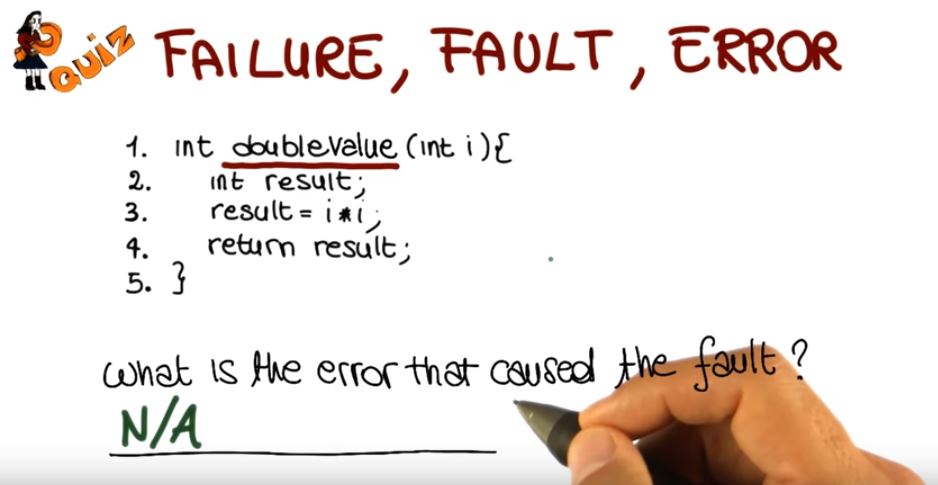 QUIZ
FAILURE, FAULT, ERROR
1. int doubleValue (int i){
2. int result;
3. result = i*i;
4. return result;
5. }
What is the error that caused the fault?
N/A